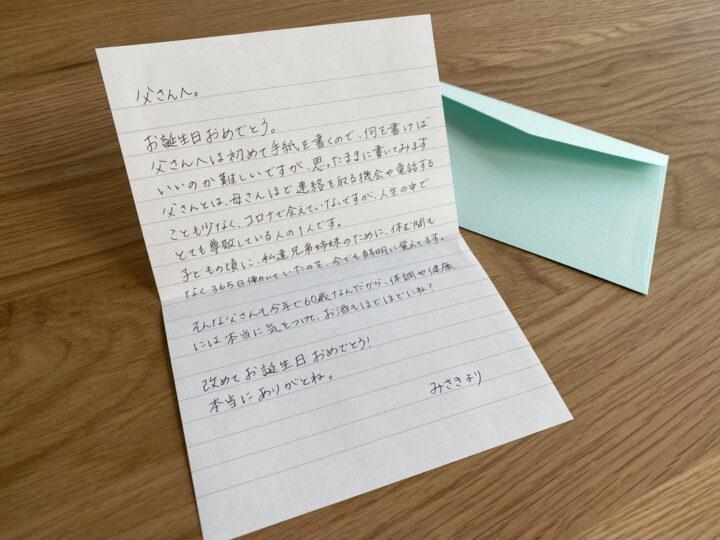 父さんへ。
お誕生日おめでとう。
父さんへは初めて手紙を書くので、何を書けば
いいのか難しいですが、思ったままに書いてみます
父さんとは、母さんほど連絡を取る機会や電話する
ことも少なく、コロナで会えていないですが、人生の中で
とても尊敬している人の1人です。
子どもの頃に、私達兄弟姉妹のために、休む間も
なく365日働いていたのを、今でも鮮明に覚えてます。
そんな父さんも今年で60歳なんだから、体調や健康
には本当に気をつけて、お酒もほどほどにね?
改めてお誕生日おめでとう!
本当にありがとね。
みさきより